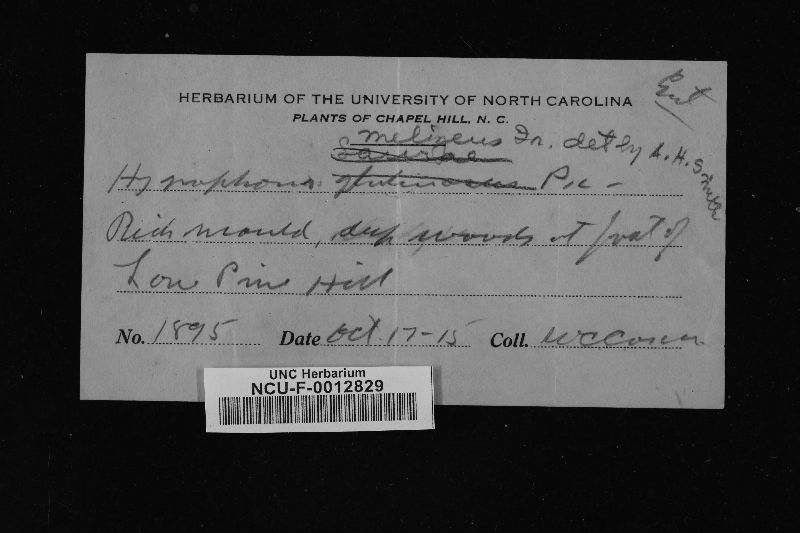 HERBARIUM OF THE UNIVERSITY OF NORTH CAROLINA
PLANTS OF CHAPEL HILL, N. C.
Fr. det by A. H. Smith
Hygrophorus glutinosus Pk -
Rich mould, deep woods at foot of
Lone Pine Hill
No. 1895 Date Oct. 17-15 Coll. WCCoker
UNC Herbarium
NCU-F-0012829